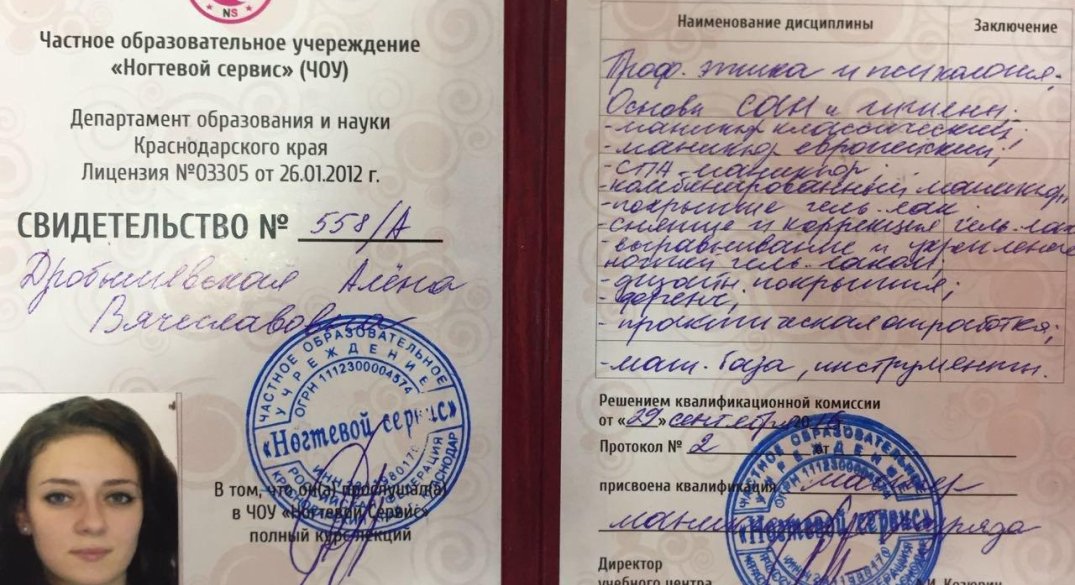 NS
Частное образовательное учереждение
«Ногтевой сервис» (ЧОУ)
Департамент образования и науки
Краснодарского края
Лицензия №03305 от 26.01.2012 г.
СВИДЕТЕЛЬСТВО № 558/А
Дробышевская Алёна
Вячеславовна
ЧАСТНОЕ ОБРАЗОВАТЕЛЬНОЕ
УЧРЕЖДЕНИЕ
ОГРН 1112300004574
«Ногтевой сервис»
В том, что он(а) прослушал(а)
в ЧОУ «Ногтевой Сервис»
полный курс лекций
Наименование дисциплины
Заключение
Проф. этика и психология;
Основы САН и гигиены;
- маникюр классический;
- маникюр европейский;
- СПА-маникюр;
- комбинированный маникюр;
- покрытие гель-лак
- снятие и коррекция гель-лак
- выравнивание и укрепление
ногтей гель-лаком;
- дизайн покрытия;
- френч;
- практическая отработка;
- мат. база, инструменты.
Решением квалификационной комиссии
от «29» сентября 20
Протокол № 2 от
присвоена квалификация мастер
разряда
ЧАСТНОЕ ОБРАЗОВАТЕЛЬНОЕ
УЧРЕЖДЕНИЕ
«Ногтевой сервис»
Директор
учебного центра
А.И. Козюрин